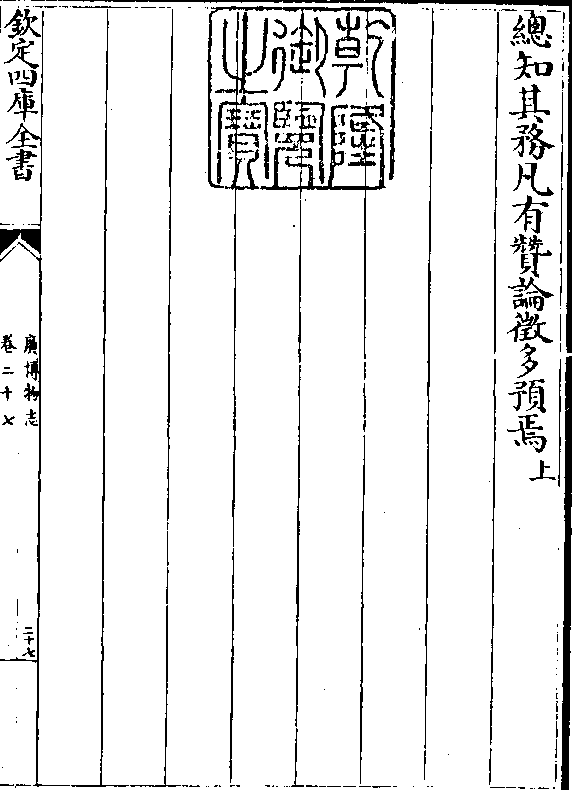 總知其務凡有贊論徵多預焉上
乾隆
御覽
之寶
欽定四庫全書
廣博物志
卷二十七
二十七